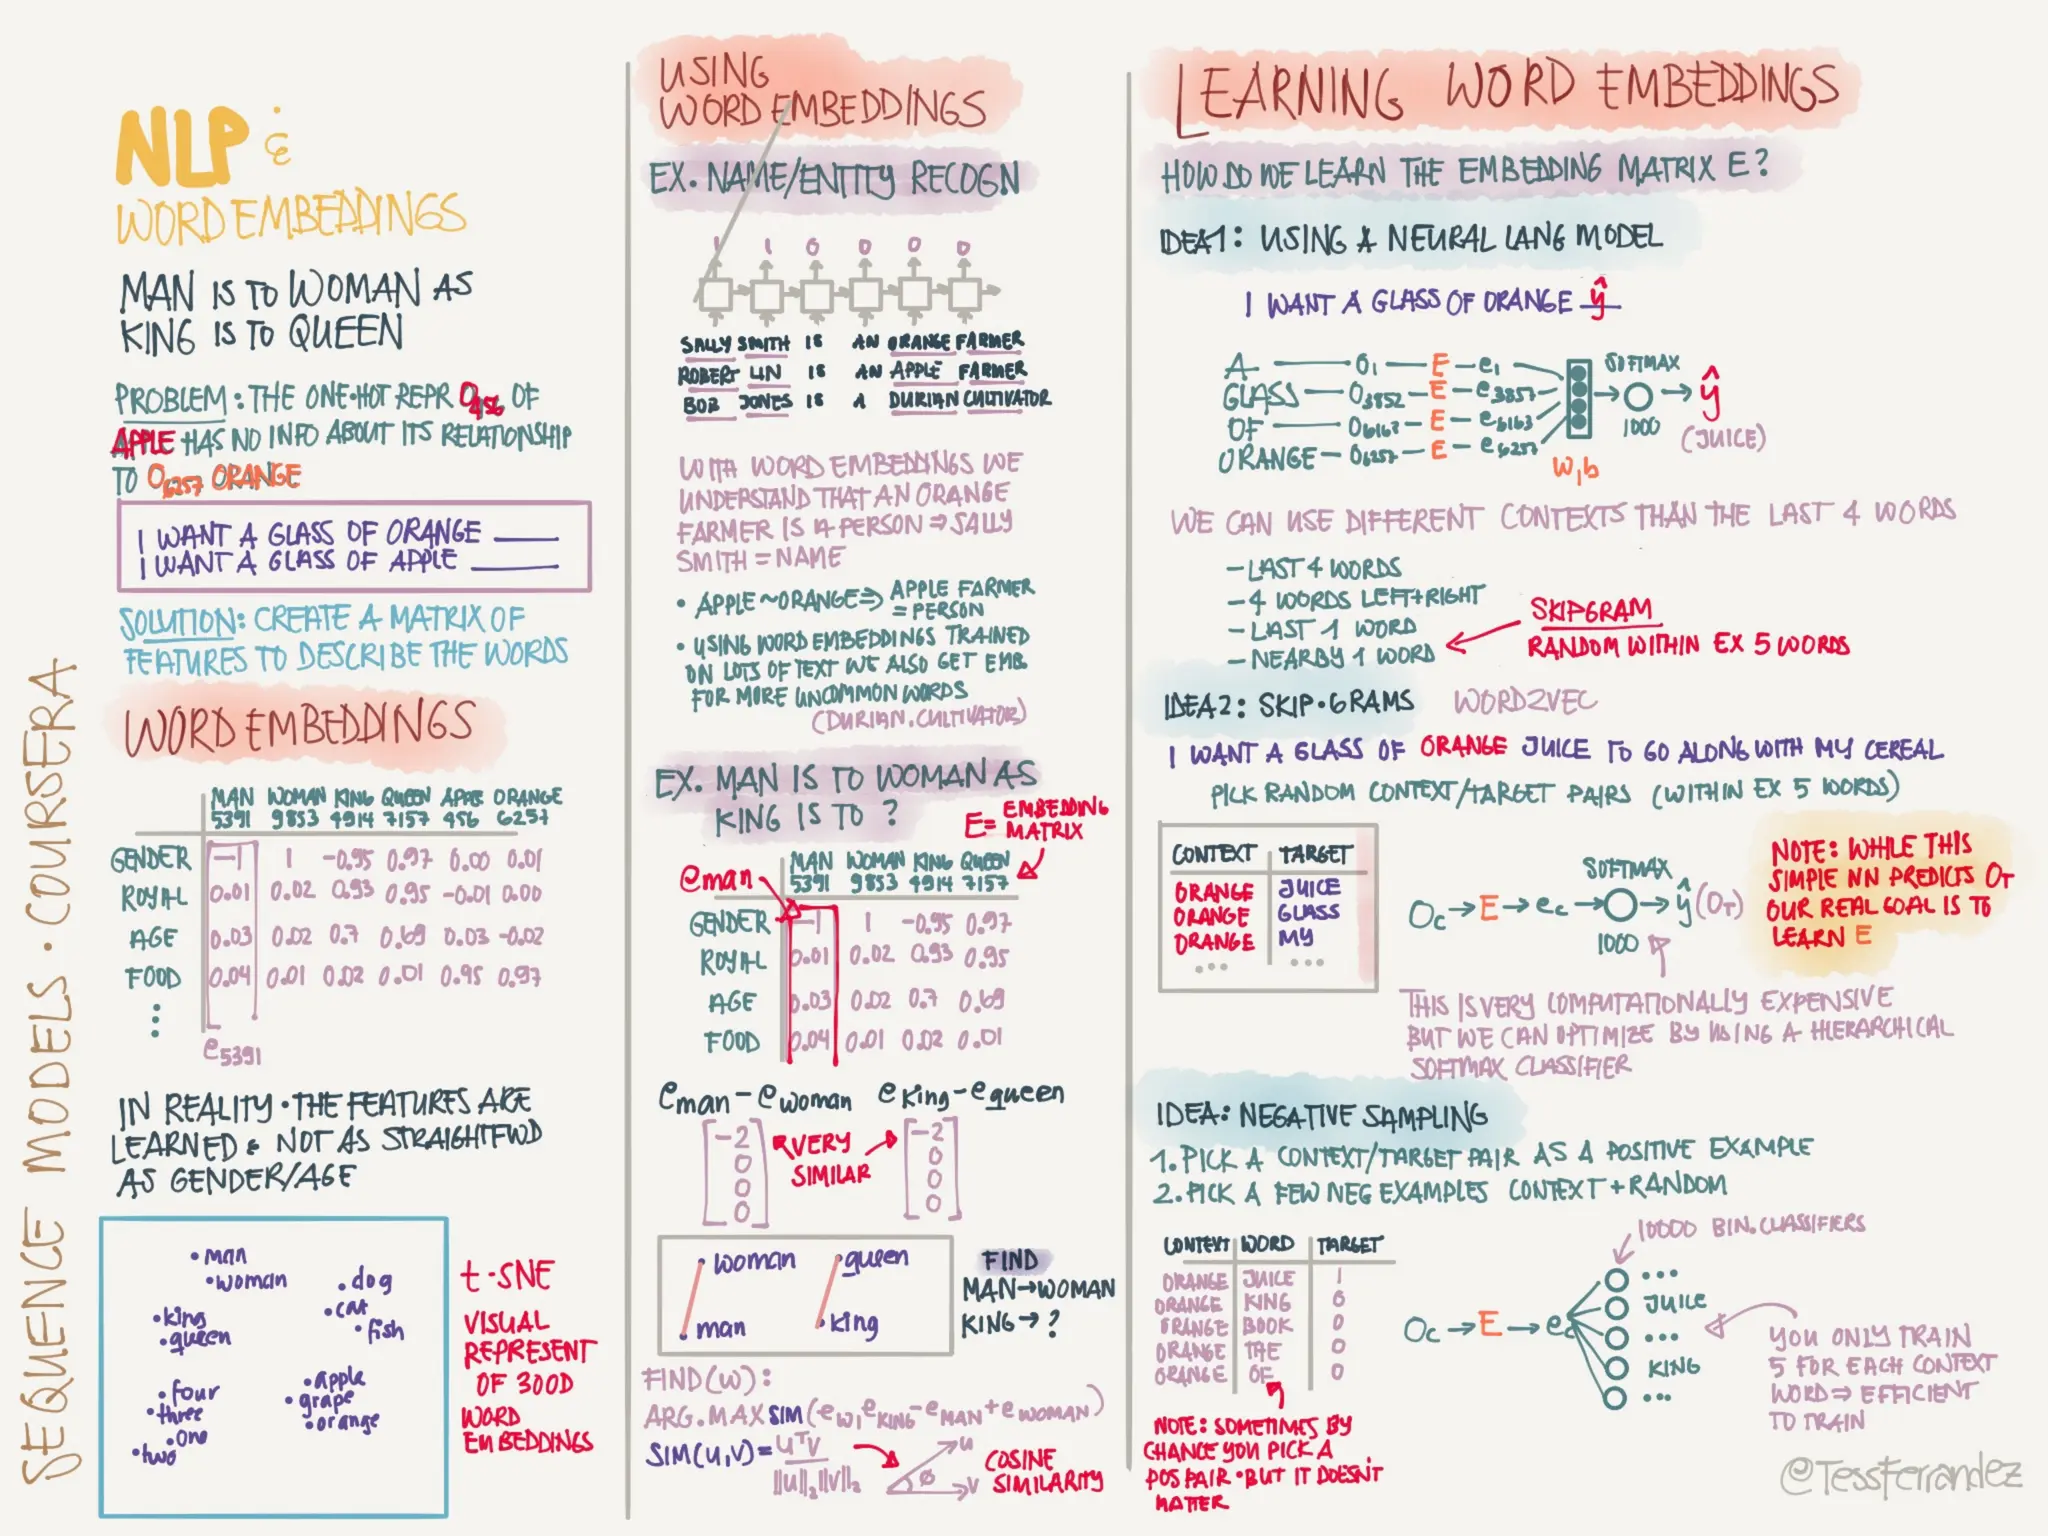 SEQUENCE MODELS · COURSERA
NLP &
WORD EMBEDDINGS
MAN IS TO WOMAN AS
KING IS TO QUEEN
PROBLEM: THE ONE·HOT REPR O456 OF
APPLE HAS NO INFO ABOUT ITS RELATIONSHIP
TO O6257 ORANGE
I WANT A GLASS OF ORANGE ____
I WANT A GLASS OF APPLE ____
SOLUTION: CREATE A MATRIX OF
FEATURES TO DESCRIBE THE WORDS
WORD EMBEDDINGS
MAN WOMAN KING QUEEN APPLE ORANGE
5391 9853 4914 7157 456 6257
GENDER -1 1 -0.95 0.97 0.00 0.01
ROYAL 0.01 0.02 0.93 0.95 -0.01 0.00
AGE 0.03 0.02 0.7 0.69 0.03 -0.02
FOOD 0.04 0.01 0.02 0.01 0.95 0.97
e5391
IN REALITY · THE FEATURES ARE
LEARNED & NOT AS STRAIGHTFWD
AS GENDER/AGE
• man
• woman
• dog
• cat
• fish
• king
• queen
• four
• three
• one
• two
• apple
• grape
• orange
t-SNE
VISUAL
REPRESENT
OF 300D
WORD
EMBEDDINGS
USING
WORD EMBEDDINGS
EX. NAME/ENTITY RECOGN
1 1 0 0 0 0
SALLY SMITH IS AN ORANGE FARMER
ROBERT LIN IS AN APPLE FARMER
BOB JONES IS A DURIAN CULTIVATOR
WITH WORD EMBEDDINGS WE
UNDERSTAND THAT AN ORANGE
FARMER IS A PERSON ⇒ SALLY
SMITH = NAME
• APPLE ~ ORANGE ⇒ APPLE FARMER
= PERSON
• USING WORD EMBEDDINGS TRAINED
ON LOTS OF TEXT WE ALSO GET EMB.
FOR MORE UNCOMMON WORDS
(DURIAN, CULTIVATOR)
EX. MAN IS TO WOMAN AS
KING IS TO ?
E = EMBEDDING
MATRIX
eman
MAN WOMAN KING QUEEN
5391 9853 4914 7157
GENDER -1 1 -0.95 0.97
ROYAL 0.01 0.02 0.93 0.95
AGE 0.03 0.02 0.7 0.69
FOOD 0.04 0.01 0.02 0.01
eman - ewoman eking - equeen
[-2 0 0 0] VERY SIMILAR [-2 0 0 0]
• woman • queen
• man • king
FIND
MAN → WOMAN
KING → ?
FIND(W):
ARG.MAX SIM(eW, eKING - eMAN + eWOMAN)
SIM(U,V) = UᵀV / ||U||₂ ||V||₂
U
ø
V
COSINE
SIMILARITY
LEARNING WORD EMBEDDINGS
HOW DO WE LEARN THE EMBEDDING MATRIX E?
IDEA1: USING A NEURAL LANG MODEL
I WANT A GLASS OF ORANGE ŷ
A — O1 — E — e1
GLASS — O3852 — E — e3857
OF — O6163 — E — e6163
ORANGE — O6257 — E — e6257
W,b
SOFTMAX
1000
ŷ
(JUICE)
WE CAN USE DIFFERENT CONTEXTS THAN THE LAST 4 WORDS
- LAST 4 WORDS
- 4 WORDS LEFT+RIGHT
- LAST 1 WORD
- NEARBY 1 WORD
SKIPGRAM
RANDOM WITHIN EX 5 WORDS
IDEA2: SKIP·GRAMS WORD2VEC
I WANT A GLASS OF ORANGE JUICE TO GO ALONG WITH MY CEREAL
PICK RANDOM CONTEXT/TARGET PAIRS (WITHIN EX 5 WORDS)
CONTEXT TARGET
ORANGE JUICE
ORANGE GLASS
ORANGE MY
... ...
SOFTMAX
Oc → E → ec → O → ŷ (OT)
1000
NOTE: WHILE THIS
SIMPLE NN PREDICTS OT
OUR REAL GOAL IS TO
LEARN E
THIS IS VERY COMPUTATIONALLY EXPENSIVE
BUT WE CAN OPTIMIZE BY USING A HIERARCHICAL
SOFTMAX CLASSIFIER
IDEA: NEGATIVE SAMPLING
1. PICK A CONTEXT/TARGET PAIR AS A POSITIVE EXAMPLE
2. PICK A FEW NEG EXAMPLES CONTEXT + RANDOM
CONTEXT WORD TARGET
ORANGE JUICE 1
ORANGE KING 0
ORANGE BOOK 0
ORANGE THE 0
ORANGE OF 0
NOTE: SOMETIMES BY
CHANCE YOU PICK A
POS PAIR · BUT IT DOESN'T
MATTER
10000 BIN. CLASSIFIERS
Oc → E → ec
...
JUICE
...
KING
...
YOU ONLY TRAIN
5 FOR EACH CONTEXT
WORD ⇒ EFFICIENT
TO TRAIN
@TessFerrandez